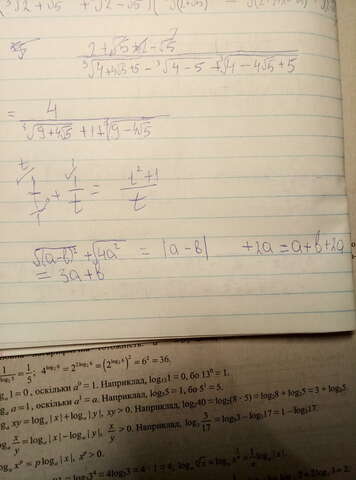 (³√2 + √5 + ³√2 - √5)(
2 + √5 + 2 - √5
³√4 + 4√5 + 5 - ³√4 - 5 + ³√4 - 4√5 + 5
= 4
³√9 + 4√5 + 1 + ³√9 - 4√5
t/1 + 1/t = t² + 1 / t
√(a-b)² + √4a² = |a - b| + 2a = a + b + 2a
= 3a + b
= 1/5. 4^log₂6 = 2^2log₂6 = (2^log₂6)² = 6² = 36.
1 = 0, оскільки a⁰ = 1. Наприклад, log₁₃1 = 0, бо 13⁰ = 1.
a = 1, оскільки a¹ = a. Наприклад, log₅5 = 1, бо 5¹ = 5.
xy = logₐ|x| + logₐ|y|, xy > 0. Наприклад, log₂40 = log₂(8 · 5) = log₂8 + log₂5 = 3 + log₂5.
x/y = logₐ|x| - logₐ|y|, x/y > 0. Наприклад, log₃ 3/17 = log₃3 - log₃17 = 1 - log₃17.
xᵖ = p logₐ|x|, xᵖ > 0.
log₃3⁴ = 4log₃3 = 4 · 1 = 4;